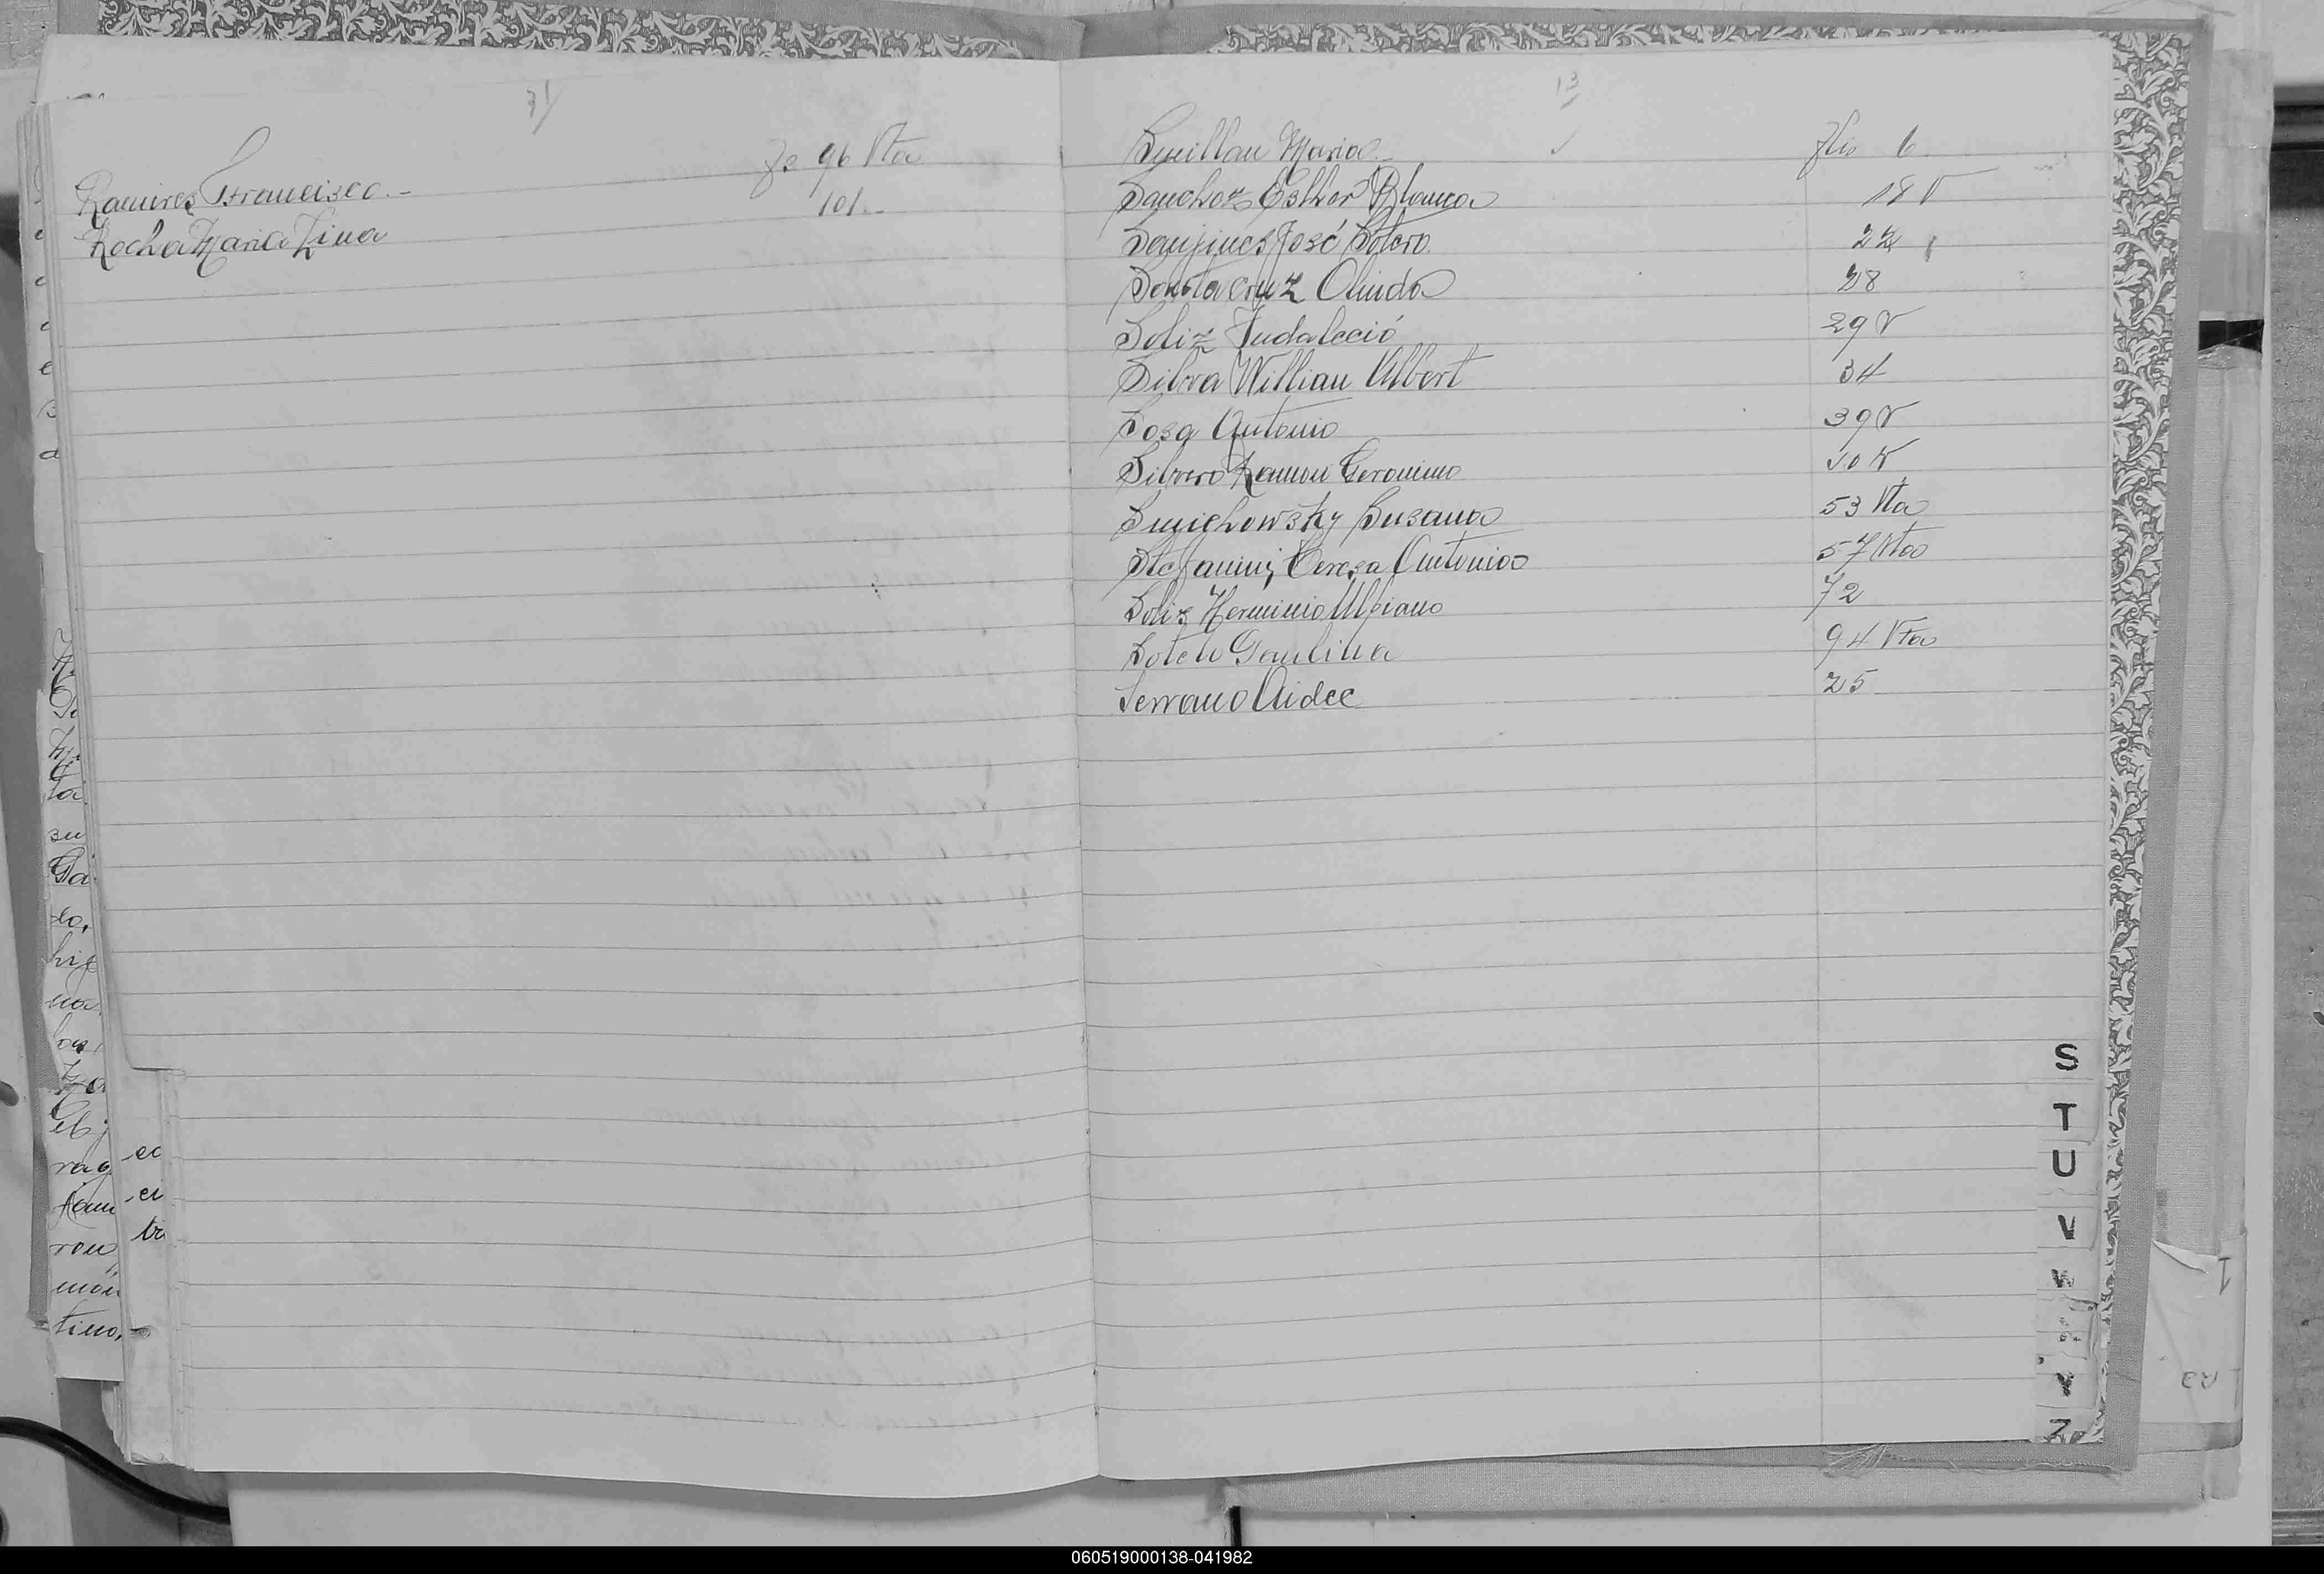 31
Fs 96 Vta
Ramires Francisco.-
101.-
Rocha Maria Lina
13
Smillan Maria.- Flio 6
Sanchez Esther Blanca 18 V
Sanjines José Sotero 22
Santa Cruz Olinda 28
Soliz Indaleció 29 V
Silva Willian Albert 34
Sosa Antonio 39 V
Silvero Ramon Geronimo
Smichowsky Susana 53 Vta
Stefanini Teresa Antonia 57 Vta
Soliz Herminio Ulpiano 72
Sotelo Paulina 94 Vta
Serrano Aidee 25
S
T
U
V
W
Y
Z
ta
su
Ga
do,
hij
na
rag
ron
món
tino,-
ec
ci
tr
060519000138-041982